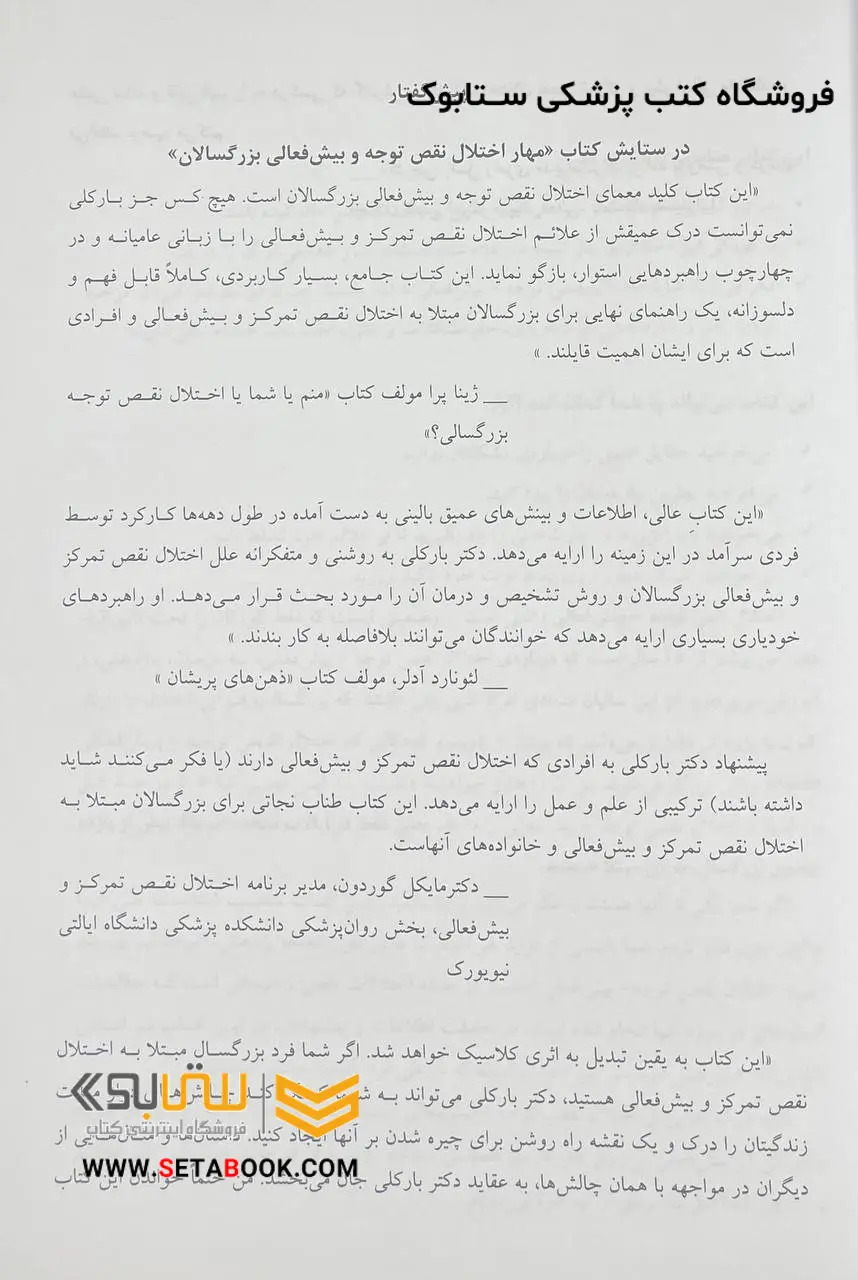 فروشگاه کتب پزشکی ستابوک
پیش‌گفتار
در ستایش کتاب «مهار اختلال نقص توجه و بیش‌فعالی بزرگسالان»
«این کتاب کلید معمای اختلال نقص توجه و بیش‌فعالی بزرگسالان است. هیچ کس جز بارکلی
نمی‌توانست درک عمیقش از علائم اختلال نقص تمرکز و بیش‌فعالی را با زبانی عامیانه و در
چهارچوب راهبردهایی استوار، بازگو نماید. این کتاب جامع، بسیار کاربردی، کاملاً قابل فهم و
دلسوزانه، یک راهنمای نهایی برای بزرگسالان مبتلا به اختلال نقص تمرکز و بیش‌فعالی و افرادی
است که برای ایشان اهمیت قایلند. »
__ ژینا پرا مولف کتاب «منم یا شما یا اختلال نقص توجه
بزرگسالی؟»
«این کتابِ عالی، اطلاعات و بینش‌های عمیق بالینی به دست آمده در طول دهه‌ها کارکرد توسط
فردی سرآمد در این زمینه را ارایه می‌دهد. دکتر بارکلی به روشنی و متفکرانه علل اختلال نقص تمرکز
و بیش‌فعالی بزرگسالان و روش تشخیص و درمان آن را مورد بحث قرار می‌دهد. او راهبردهای
خودیاری بسیاری ارایه می‌دهد که خوانندگان می‌توانند بلافاصله به کار بندند. »
__ لئونارد آدلر، مولف کتاب «ذهن‌های پریشان »
پیشنهاد دکتر بارکلی به افرادی که اختلال نقص تمرکز و بیش‌فعالی دارند (یا فکر می‌کنند شاید
داشته باشند) ترکیبی از علم و عمل را ارایه می‌دهد. این کتاب طناب نجاتی برای بزرگسالان مبتلا به
اختلال نقص تمرکز و بیش‌فعالی و خانواده‌های آنهاست.
__ دکترمایکل گوردون، مدیر برنامه اختلال نقص تمرکز و
بیش‌فعالی، بخش روان‌پزشکی دانشکده پزشکی دانشگاه ایالتی
نیویورک
«این کتاب به یقین تبدیل به اثری کلاسیک خواهد شد. اگر شما فرد بزرگسال مبتلا به اختلال
نقص تمرکز و بیش‌فعالی هستید، دکتر بارکلی می‌تواند به کند چالش‌های
زندگیتان را درک و یک نقشه راه روشن برای چیره شدن بر آنها ایجاد کنید. داستان‌ها و از
دیگران در مواجهه با همان چالش‌ها، به عقاید دکتر بارکلی جان می‌بخشد. من حتماً خواندن این کتاب
ستابوک
فروشگاه اینترنتی کتاب
WWW.SETABOOK.COM